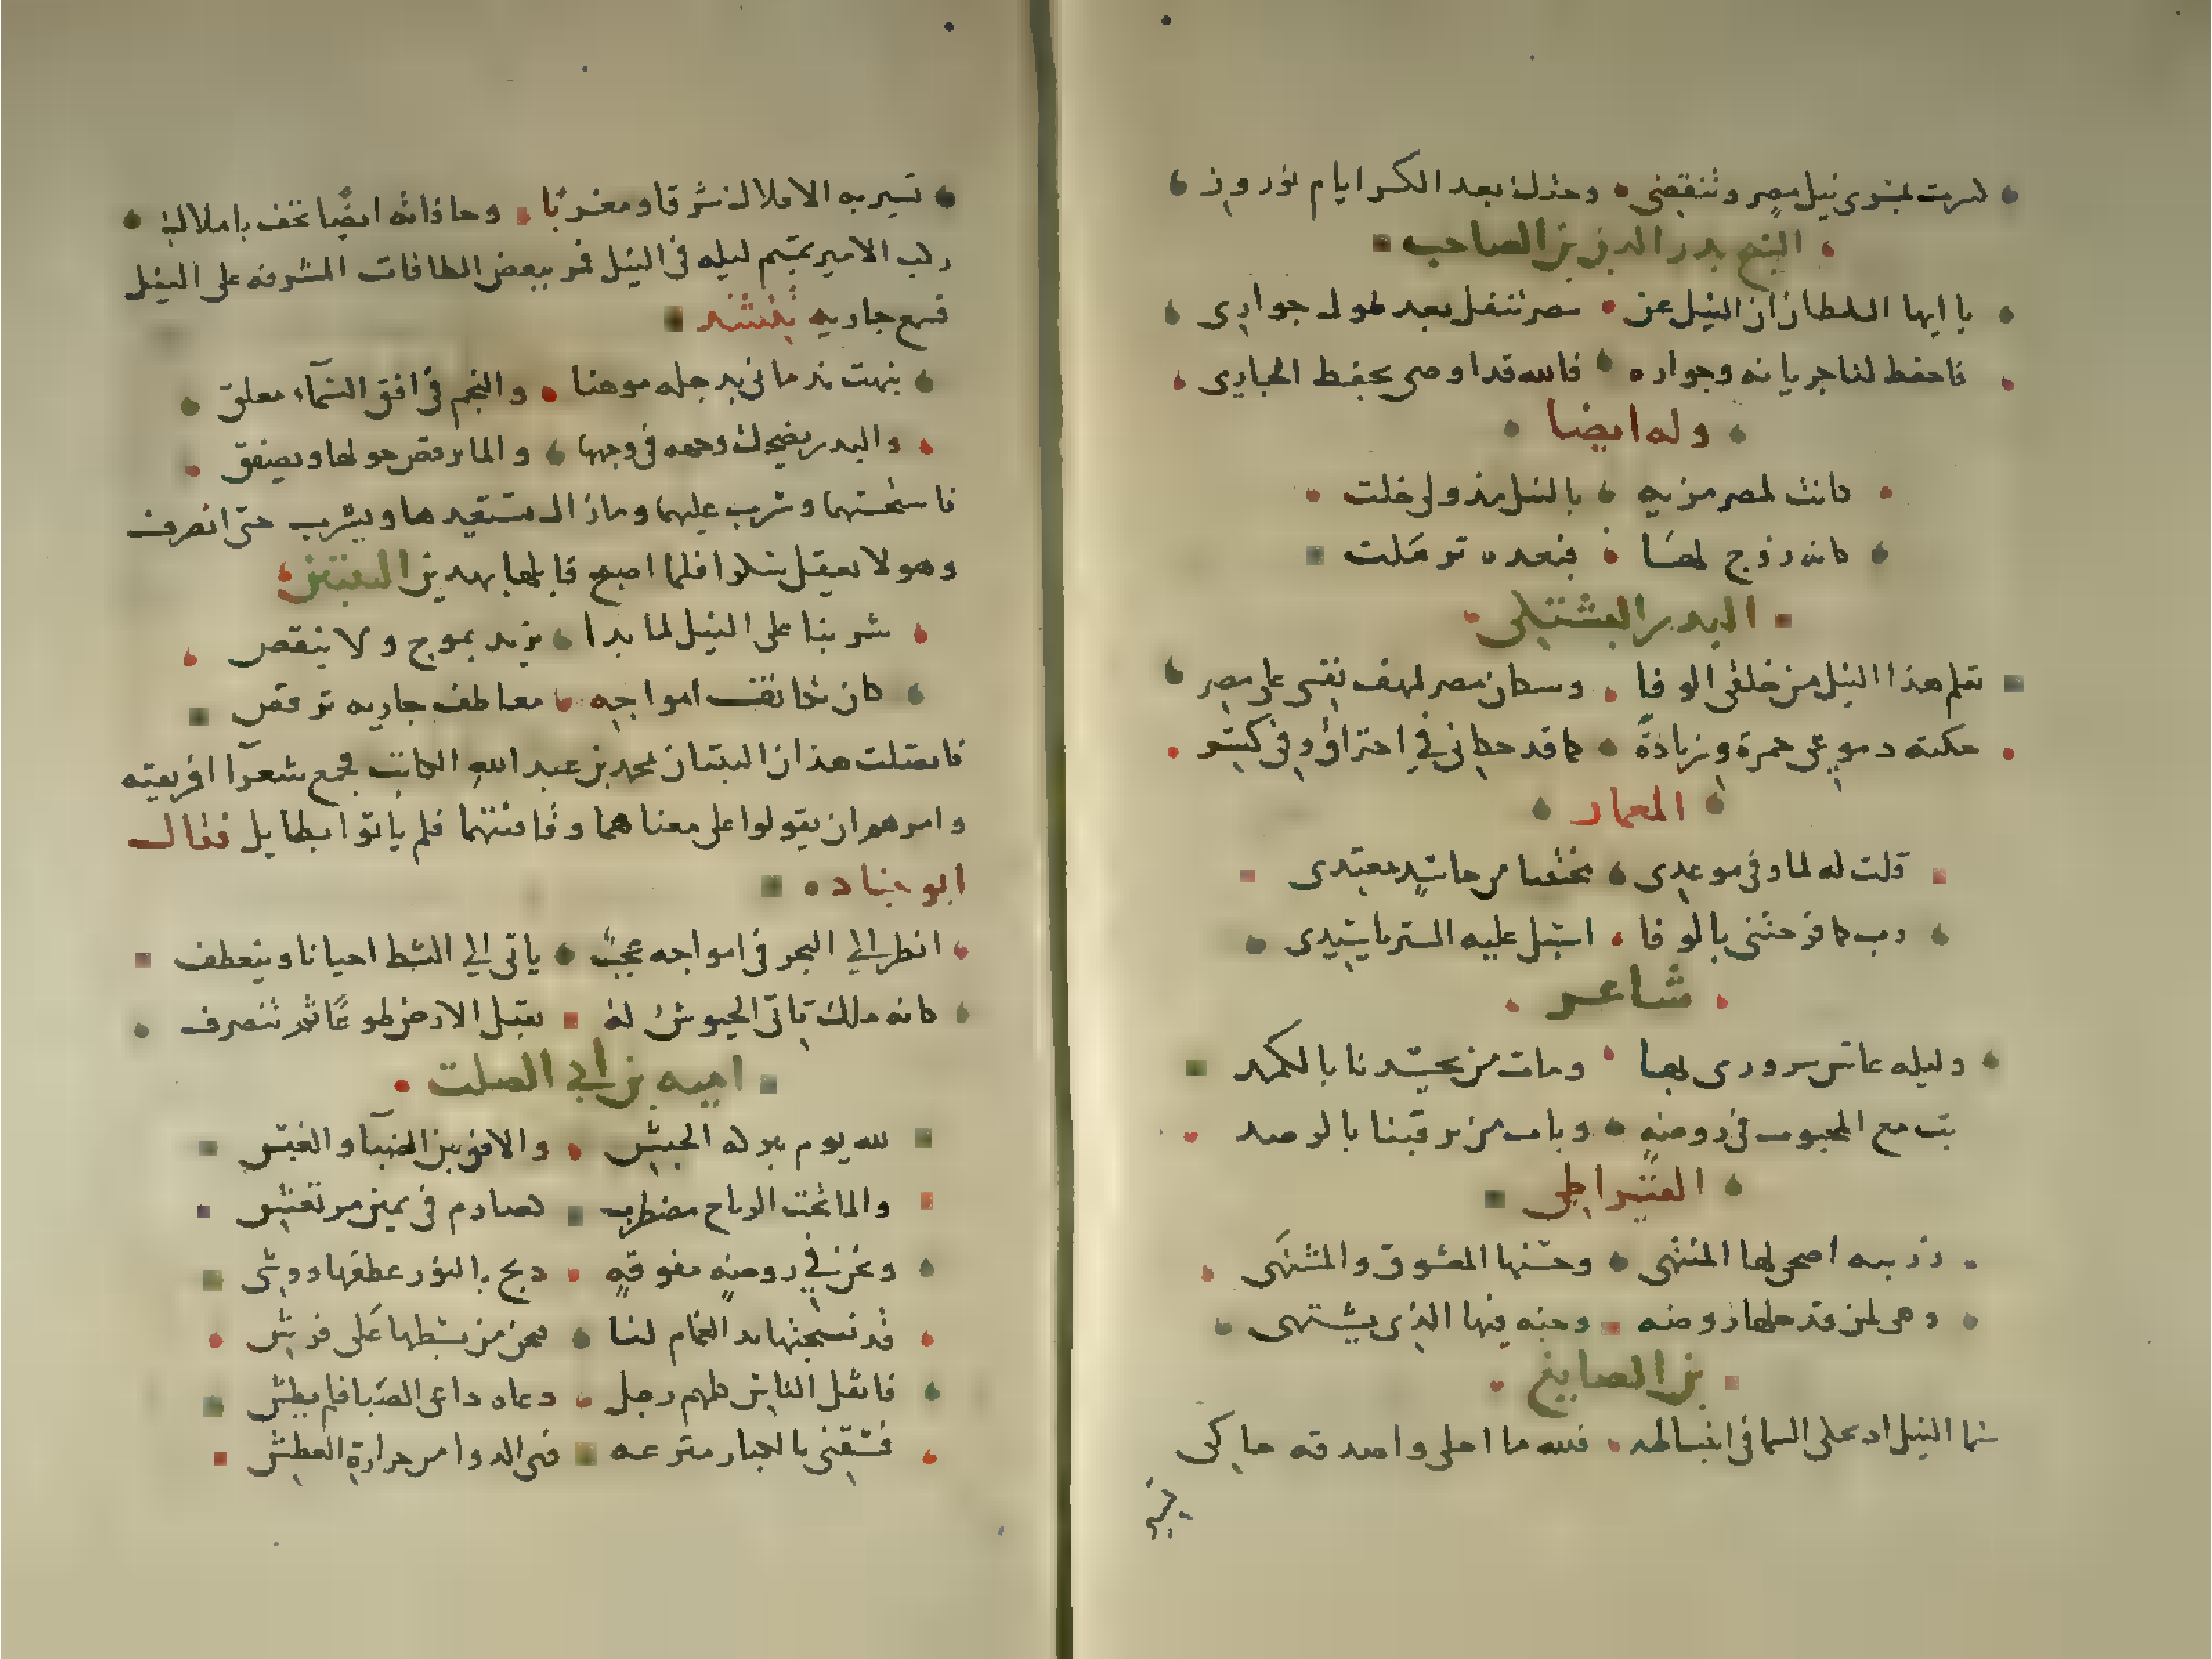 نيل مصر وتنقضى وحذك بعد الكسر ايام نوروز
الشيخ بدر الدين بن الصاحب
يا ايها السلطان ان النيل عن مصر تنقل بعد طول جوارى
فاحفظ لنا جريانه وجواره فالله قد اوصى بحفظ الجارى
وله ايضا
كانت لمصر مزيه بالنيل مذ ولى خلت
كانه زوج لها فبعده ترملت
البدر البشتكى
تعلم هذا النيل من خلقى الوفا وسكان مصر لهف نفسى على مصر
حكته دموعى حمرة وزيادة كما قد حكانى فى احتراق وفى كسر
المعمار
قلت له لما وفى موعدى مختفيا من حاسد معتدى
رب كما فرحتنى بالوفا اسبل عليه الستر يا سيدى
شاعر
وليله عاش سرورى بها ومات من يحسدنا بالكمد
بت مع المحبوب فى روضة وبات من يرقبنا بالرصد
القيراطى
زربيه اضحى لها المنتهى وحسنها المعشوق والمشتهى
وهى لمن قد حلها روضه وجنه فيها الذى يشتهى
بن الصايغ
فى انبساطه فلله ما احلى واصدقه حاكى
تسير به الاملاك شرقا ومغربا وحافاته ايضا تحف باملاك
ركب الامير تميم ليله فى النيل فمر ببعض الطاقات المشرفه على النيل
فسمع جاريه تنشد
نبهت ندمانى بدجله موهنا والنجم فى افق السماء معلق
والبدر يضحك وجهه فى وجهها والما يرقص حولها ويصفق
فاستحسنها وشرب عليها وما زال يستعيدها ويشرب حتى انصرف
وهو لا يعقل سكرا فلما اصبح قابلها بهدين البيتين
شربنا على النيل لما بدا يزيد بموج ولا ينقص
كان تكاثف امواجه معاطف جاريه ترقص
هذان البيتان لمحمد بن عبد الله الكاتب فجمع شعرآ افريقيه
وامرهم ان يقولوا على معناهما وقافيتهما فلم ياتوا بطايل فقال
ابو
انظر الى البحر فى امواجه عجب ياتى الى الشط احيانا وينعطف
كانه ملك تاتى الجيوش له تقبل الارض طوعا ثم تنصرف
اميه بن ابى الصلت
لله يوم ببركه الحبش والافق بين الضيآ والغبش
والما تحت الرياح مضطرب كصارم فى يمين مرتعش
ونحن فى روضة مفوفة دبج بالنور عطفها ووشى
قد نسجتها يد الغمام لنا فنحن من بسطها على فرش
فاثقل الناس كلهم رجل دعاه داعى الصبا فلم يطش
فسقنى بالكبار مترعه فهى الدوا من حرارة العطش